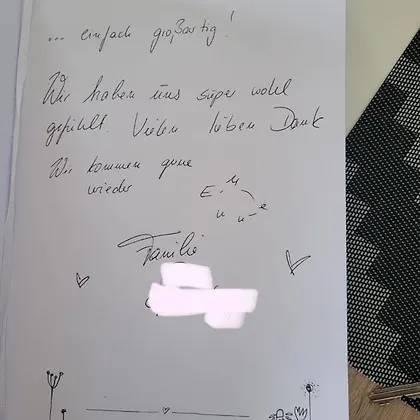 ... einfach großartig!
Wir haben uns super wohl
gefühlt. Vielen lieben Dank
Wir kommen gerne
wieder
Familie